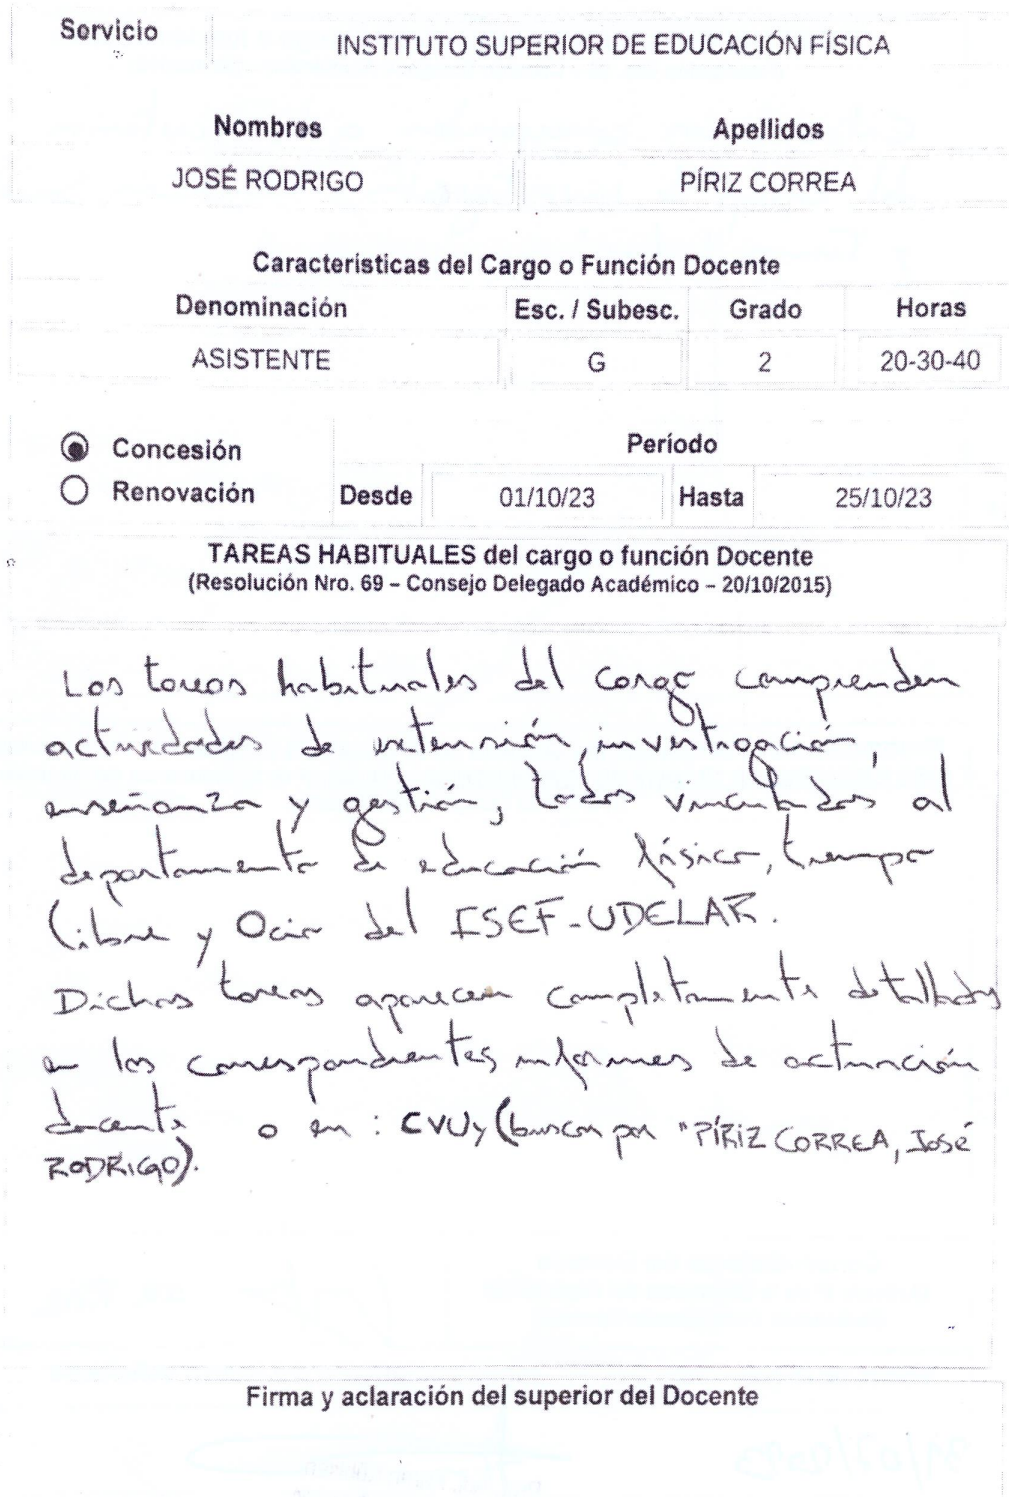 Servicio
INSTITUTO SUPERIOR DE EDUCACIÓN FÍSICA
Nombres Apellidos
JOSÉ RODRIGO PÍRIZ CORREA
Características del Cargo o Función Docente
Denominación Esc. / Subesc. Grado Horas
ASISTENTE G 2 20-30-40
Concesión Período
Renovación Desde 01/10/23 Hasta 25/10/23
TAREAS HABITUALES del cargo o función Docente
(Resolución Nro. 69 – Consejo Delegado Académico – 20/10/2015)
Las tareas habituales del cargo comprenden
actividades de extensión, investigación,
enseñanza y gestión, todas vinculadas al
departamento de educación física, tiempo
libre y Ocio del ISEF-UDELAR.
Dichas tareas aparecen completamente detalladas
en los correspondientes informes de actuación
docente o en: CVUy (buscar por "PÍRIZ CORREA, José
RODRIGO).
Firma y aclaración del superior del Docente